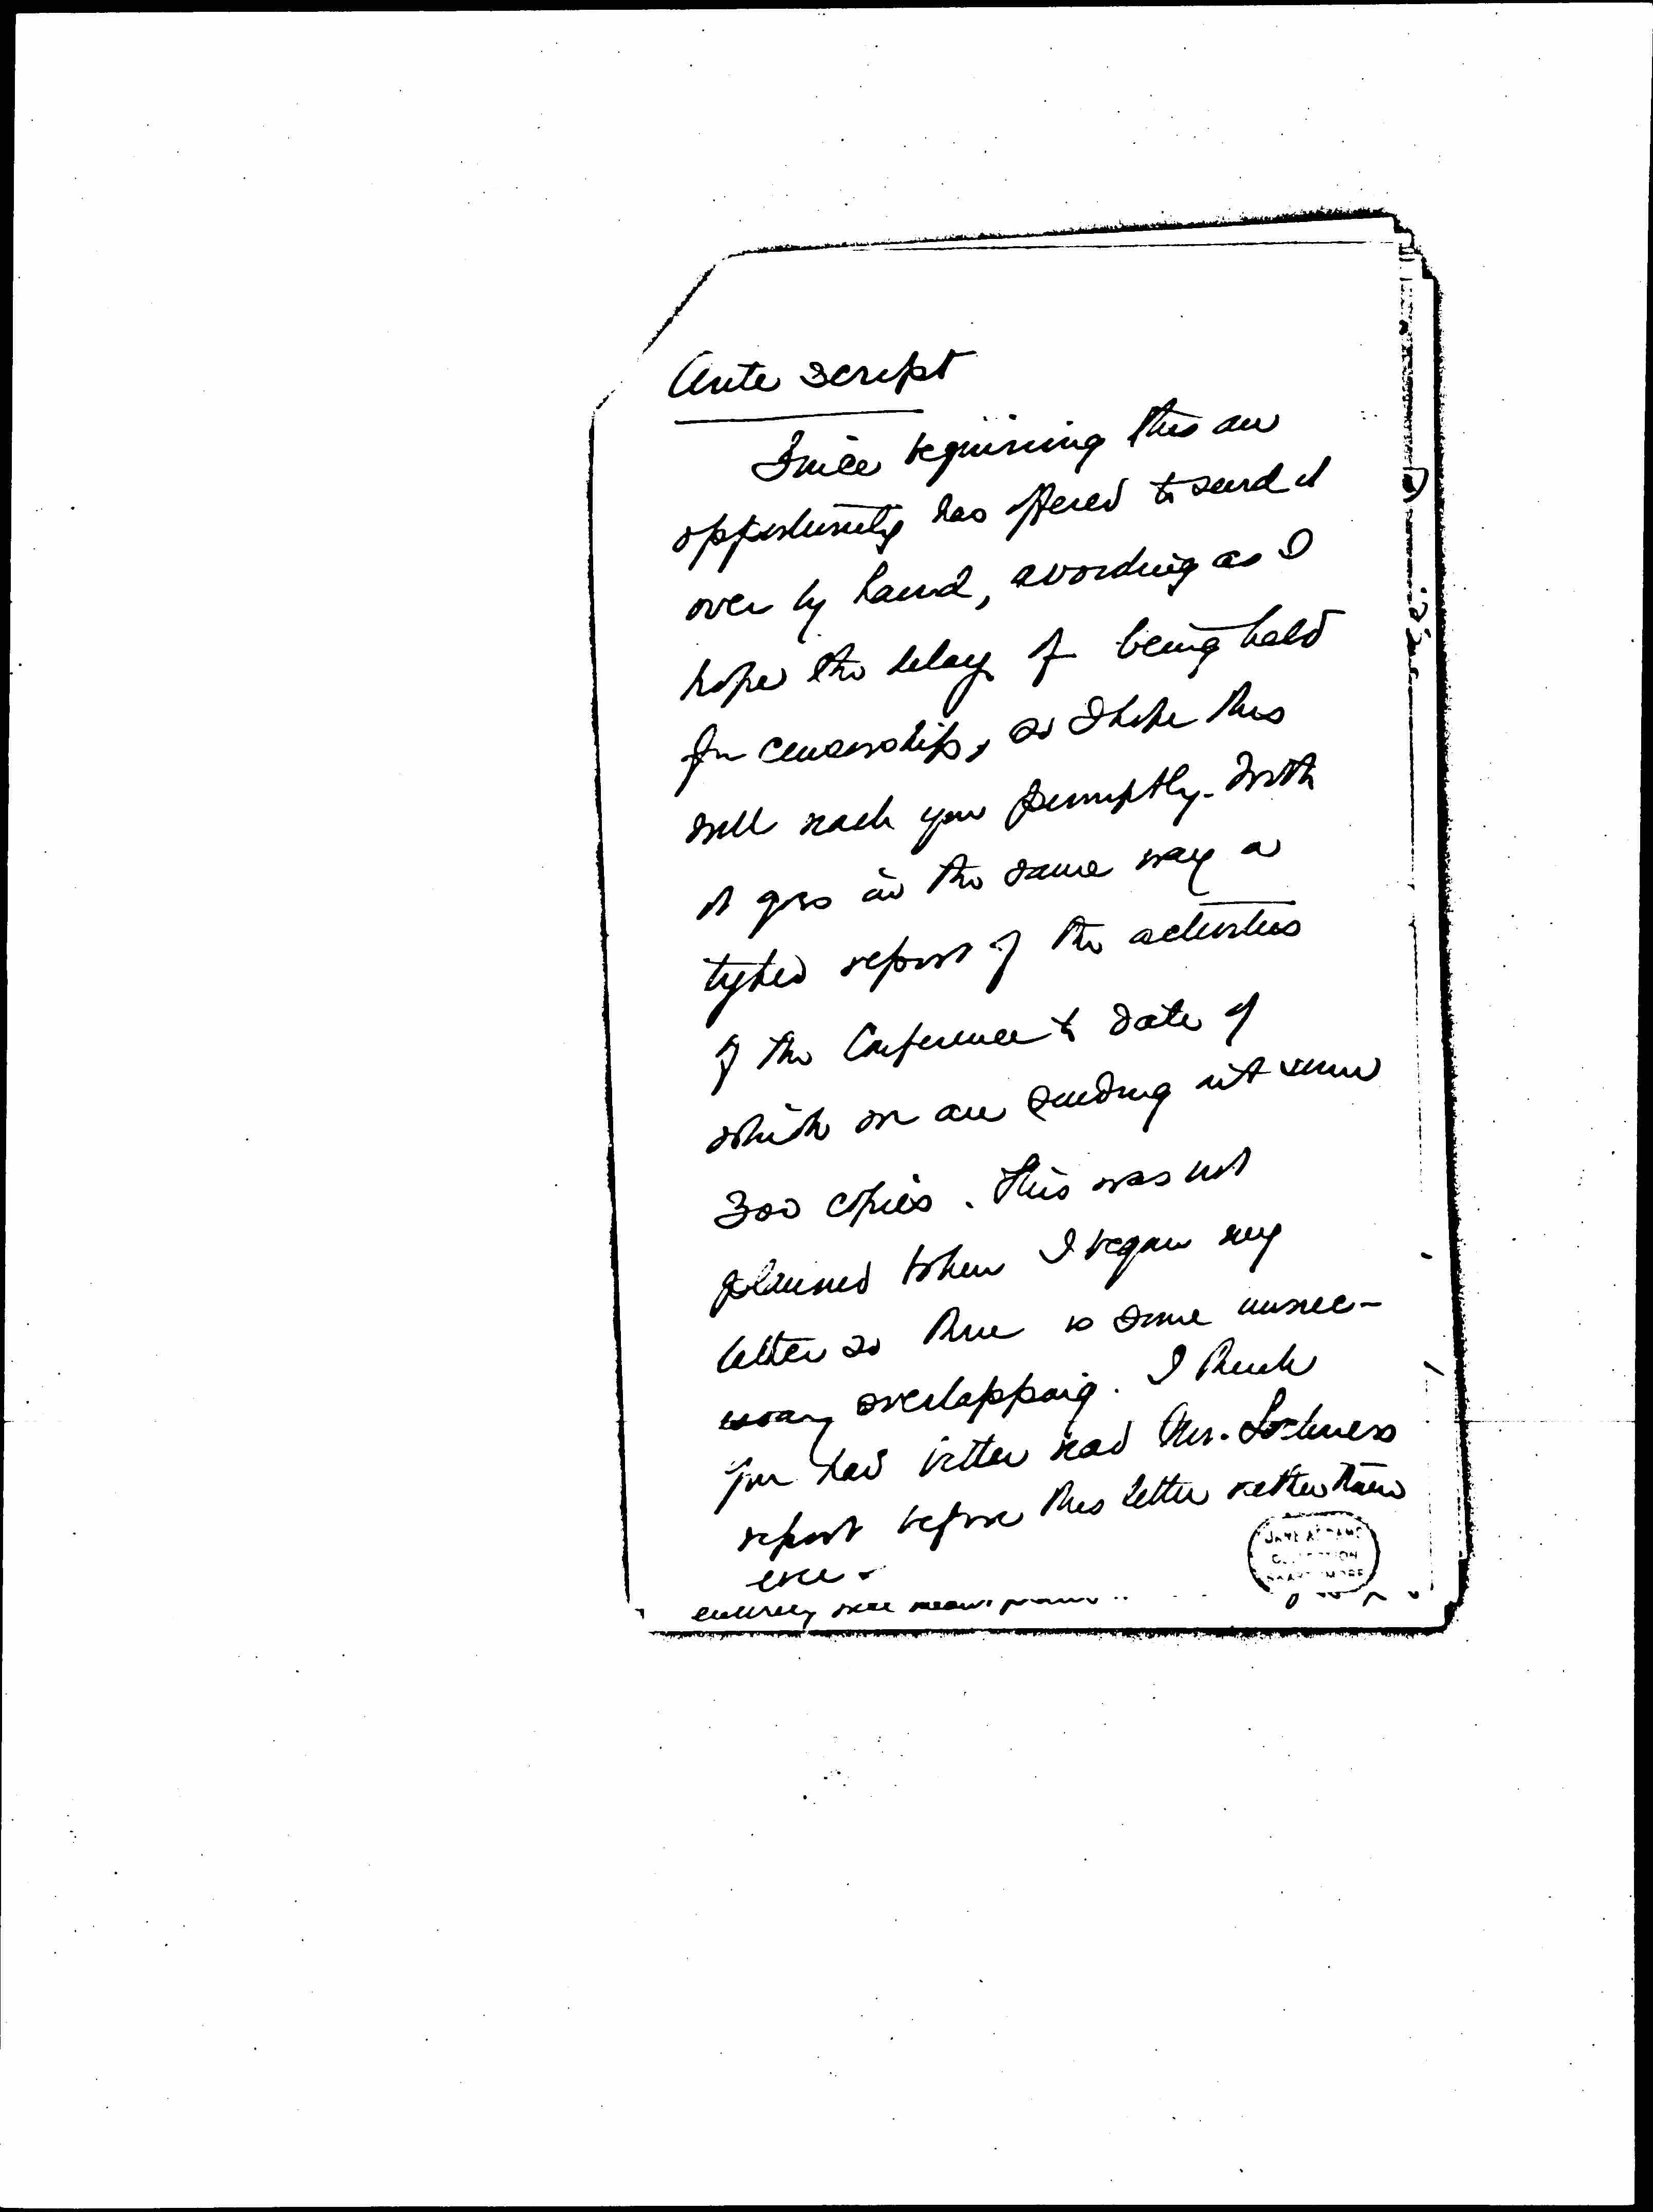 Ante Script
Since beginning this an
opportunity has offered to send it
over by hand, avoiding as I
hope the delay of being held
for censorship, so I hope this
will reach you promptly. With
it goes in the same way a
typed report of the activities
of the Conference to date of
which we are sending out some
300 copies. This was not
planned when I began my
letter so there is some unnec-
essary overlapping. I think
you had better read Mr. Lochner's
report before this letter rather than
entirely
JANE ADDAMS
COLLECTION
SWARTHMORE